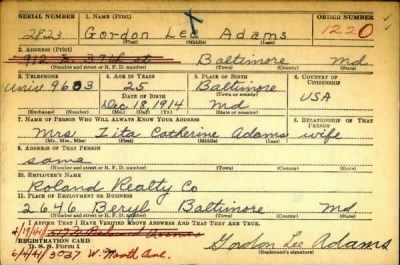 SERIAL NUMBER 1. NAME (Print) ORDER NUMBER
2823 Gordon Lee Adams 1220
(First) (Middle) (Last)
2. ADDRESS (Print)
Baltimore Md
(Number and street or R. F. D. number) (Town) (County) (State)
3. TELEPHONE 4. AGE IN YEARS 5. PLACE OF BIRTH 6. COUNTRY OF CITIZENSHIP
Univ 9603 25 Baltimore USA
DATE OF BIRTH (Town or county)
Dec 18, 1914 Md
(Exchange) (Number) (Mo.) (Day) (Yr.) (State or country)
7. NAME OF PERSON WHO WILL ALWAYS KNOW YOUR ADDRESS 8. RELATIONSHIP OF THAT PERSON
Mrs Zita Catherine Adams wife
(Mr., Mrs., Miss) (First) (Middle) (Last)
9. ADDRESS OF THAT PERSON
same
(Number and street or R. F. D. number) (Town) (County) (State)
10. EMPLOYER'S NAME
Roland Realty Co
11. PLACE OF EMPLOYMENT OR BUSINESS
2646 Beryl Baltimore Md
(Number and street or R. F. D. number) (Town) (County) (State)
I AFFIRM THAT I HAVE VERIFIED ABOVE ANSWERS AND THAT THEY ARE TRUE.
REGISTRATION CARD
D. S. S. Form 1 Gordon Lee Adams
W. North Ave. (Registrant's signature)